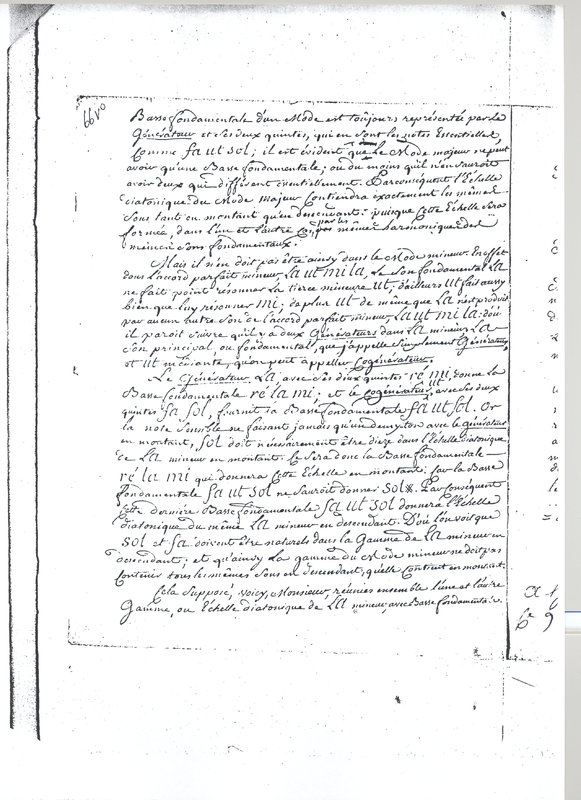 66 vo
Basse fondamentale d'un Mode est toujours représentée par le
Générateur et ses deux quintes, qui en sont les notes Essentielles,
comme fa ut sol; il est évident que le Mode majeur ne peut
avoir qu'une Basse fondamentale; ou du moins qu'il n'en sauroit
avoir deux qui différent éssentiellement. Parconséquent l'Echelle
diatonique du Mode majeur contiendra exactement les mêmes
sons tant en montant qu'en descendant: puisque cette Echelle sera
formée, dans l'un et l'autre cas, par les mêmes harmoniques des
mêmes sons fondamentaux.
Mais il n'en doit pas être ainsy dans le Mode mineur. En effet
dans l'accord parfait mineur La ut mi la, le son fondamental La
ne fait point résonner la tierce mineure ut; d'ailleurs ut fait aussy
bien que luy résonner mi; de plus ut de même que La n'est produit
par aucun autre son de l'accord parfait mineur La ut mi la: d'où
il paroit suivre qu'il y a deux Générateurs dans La mineur, La
son principal ou fondamental, que j'appelle simplement Générateur,
et ut médiante, qu'on peut appeller Cogénérateur.
Le Générateur La avec ses deux quintes ré mi, donne la
Basse fondamentale ré la mi; et le cogénérateur ut avec ses deux
quintes fa sol, fournit la Basse fondamentale fa ut sol. Or
la note sensible ne faisant jamais qu'un demy ton avec le générateur
en montant, sol doit nécessairement être dieze dans l'Echelle diatonique
de La mineur en montant. Ce sera donc la Basse fondamentale
ré la mi qui donnera cette Echelle en montant: car la Basse
fondamentale fa ut sol ne sauroit donner sol ※. Par conséquent
cette derniere Basse fondamentale fa ut sol donnera l'Echelle
diatonique du même La mineur en descendant. D'où l'on voit que
sol et fa doivent être naturels dans la Gamme de La mineur en
descendant; et qu'ainsy la gamme du Mode mineur ne doit pas
contenir tous les mêmes sons en descendant, qu'elle contient en montant.
Cela supposé, voicy, Monsieur, réunies ensemble l'une et l'autre
Gamme, ou Echelle diatonique de La mineur, avec Basse fondamentale.